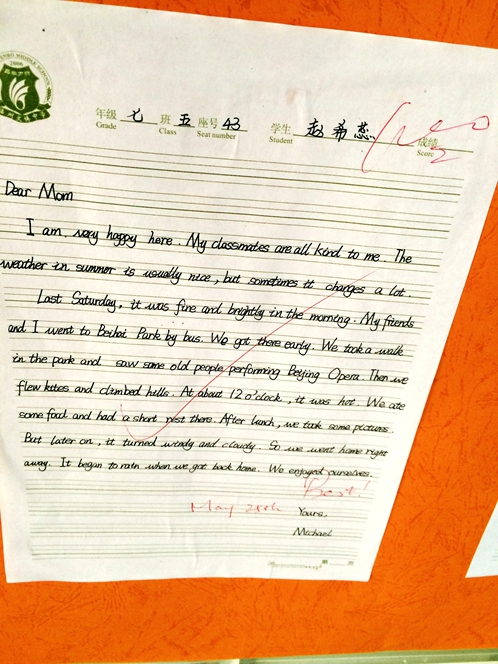 2006
年级 七 班 五 座号 43 学生 赵希蕊 成绩
Grade Class Seat number Student Score
Dear Mom
I am very happy here. My classmates are all kind to me. The
weather in summer is usually nice, but sometimes it changes a lot.
Last Saturday, it was fine and brightly in the morning. My friends
and I went to Beihai Park by bus. We got there early. We took a walk
in the park and saw some old people performing Beijing Opera. Then we
flew kites and climbed hills. At about 12 o'clock, it was hot. We ate
some food and had a short rest there. After lunch, we took some pictures.
But later on, it turned windy and cloudy. So we went home right
away. It began to rain when we got back home. We enjoyed ourselves.
Best!
May 28th Yours,
Michael